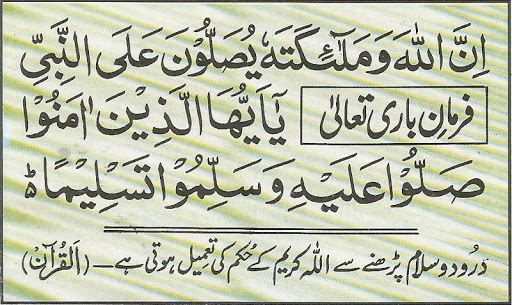 اِنَّ اللّٰهَ وَمَلٰٓئِكَتَهٗ يُصَلُّوْنَ عَلَى النَّبِىِّ
فرمانِ باری تعالیٰ
يٰٓاَيُّهَا الَّذِيْنَ اٰمَنُوْا
صَلُّوْا عَلَيْهِ وَسَلِّمُوْا تَسْلِيْمًا ؕ
دُرود و سلام پڑھنے سے اللہ کریم کے حُکم کی تعمیل ہوتی ہے۔ (اَلقُرآن)